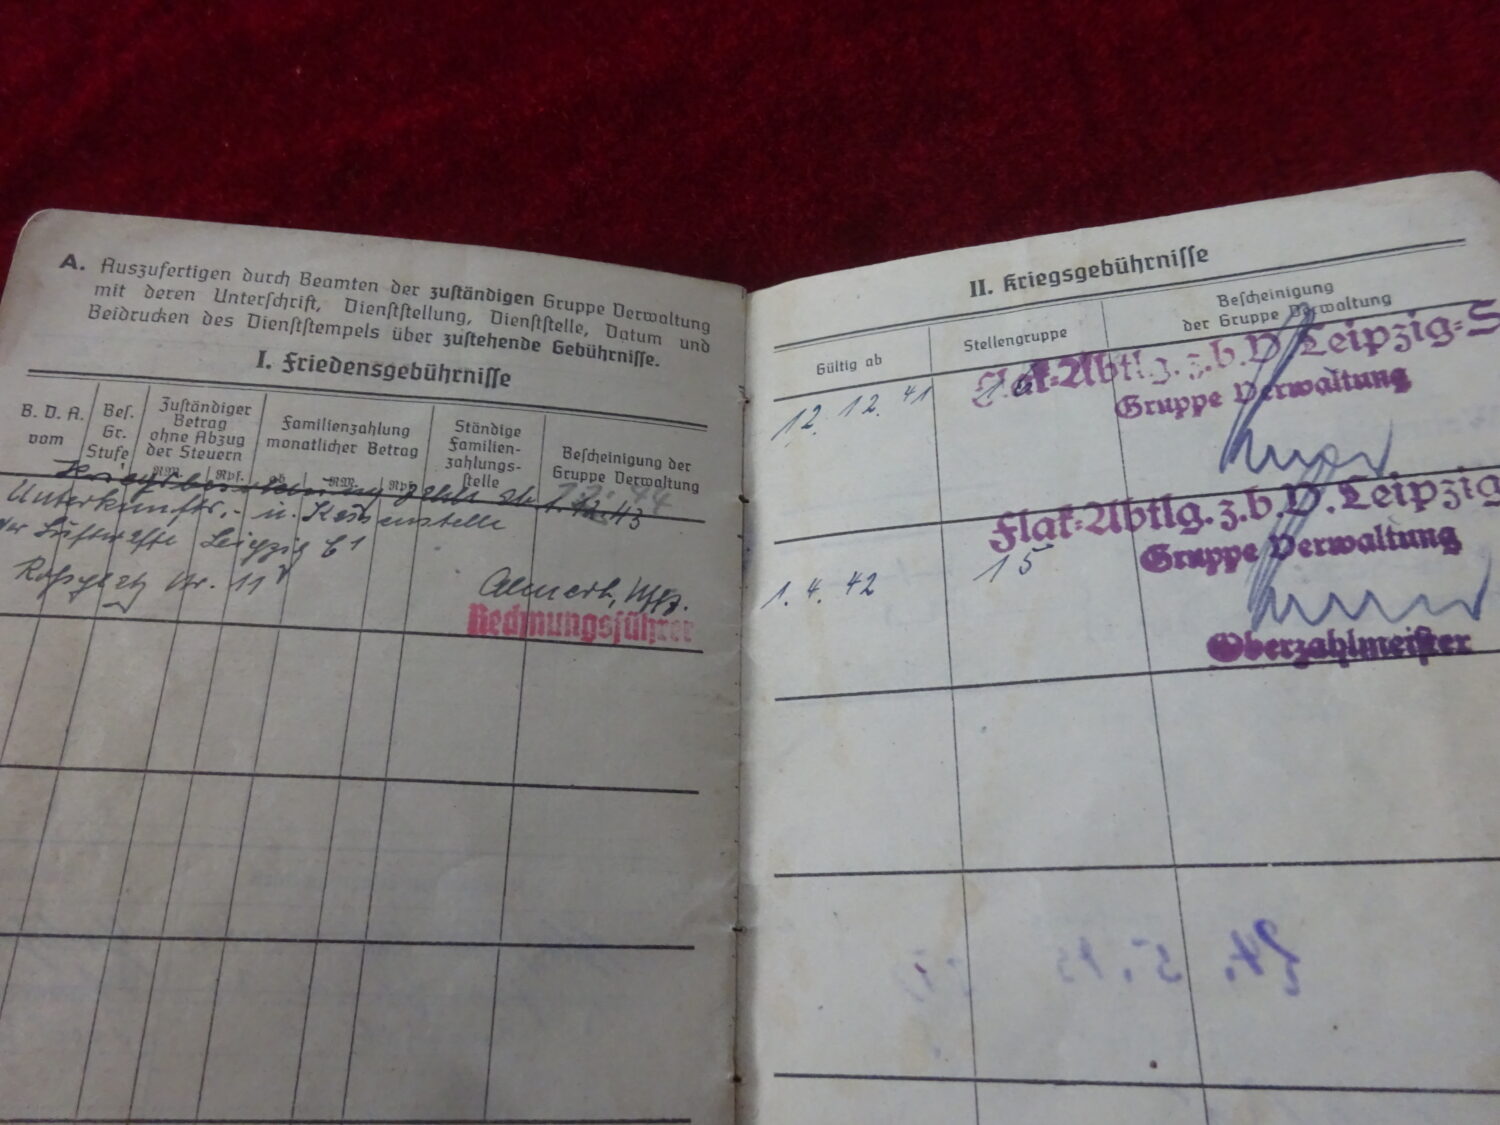 A. Auszufertigen durch Beamten der zuständigen Gruppe Verwaltung
mit deren Unterschrift, Dienststellung, Dienststelle, Datum und
Beidrucken des Dienststempels über zustehende Gebührnisse.
I. Friedensgebührnisse
B. D. A. vom
Bes. Gr. Stufe
Zuständiger Betrag ohne Abzug der Steuern
RM. Rpf.
Familienzahlung monatlicher Betrag
ab RM. Rpf.
Ständige Familien-zahlungs-stelle
Bescheinigung der Gruppe Verwaltung
zahlt
Unterkunfts,- u.
der Luftwaffe Leipzig C1
Nr. 11
Rechnungsführer
II. Kriegsgebührnisse
Gültig ab
Stellengruppe
Bescheinigung
der Gruppe Verwaltung
12. 12. 41
Flak=Abtlg. z. b. V. Leipzig=S
Gruppe Verwaltung
1. 4. 42
15
Flak=Abtlg. z. b. V. Leipzig
Gruppe Verwaltung
Oberzahlmeister